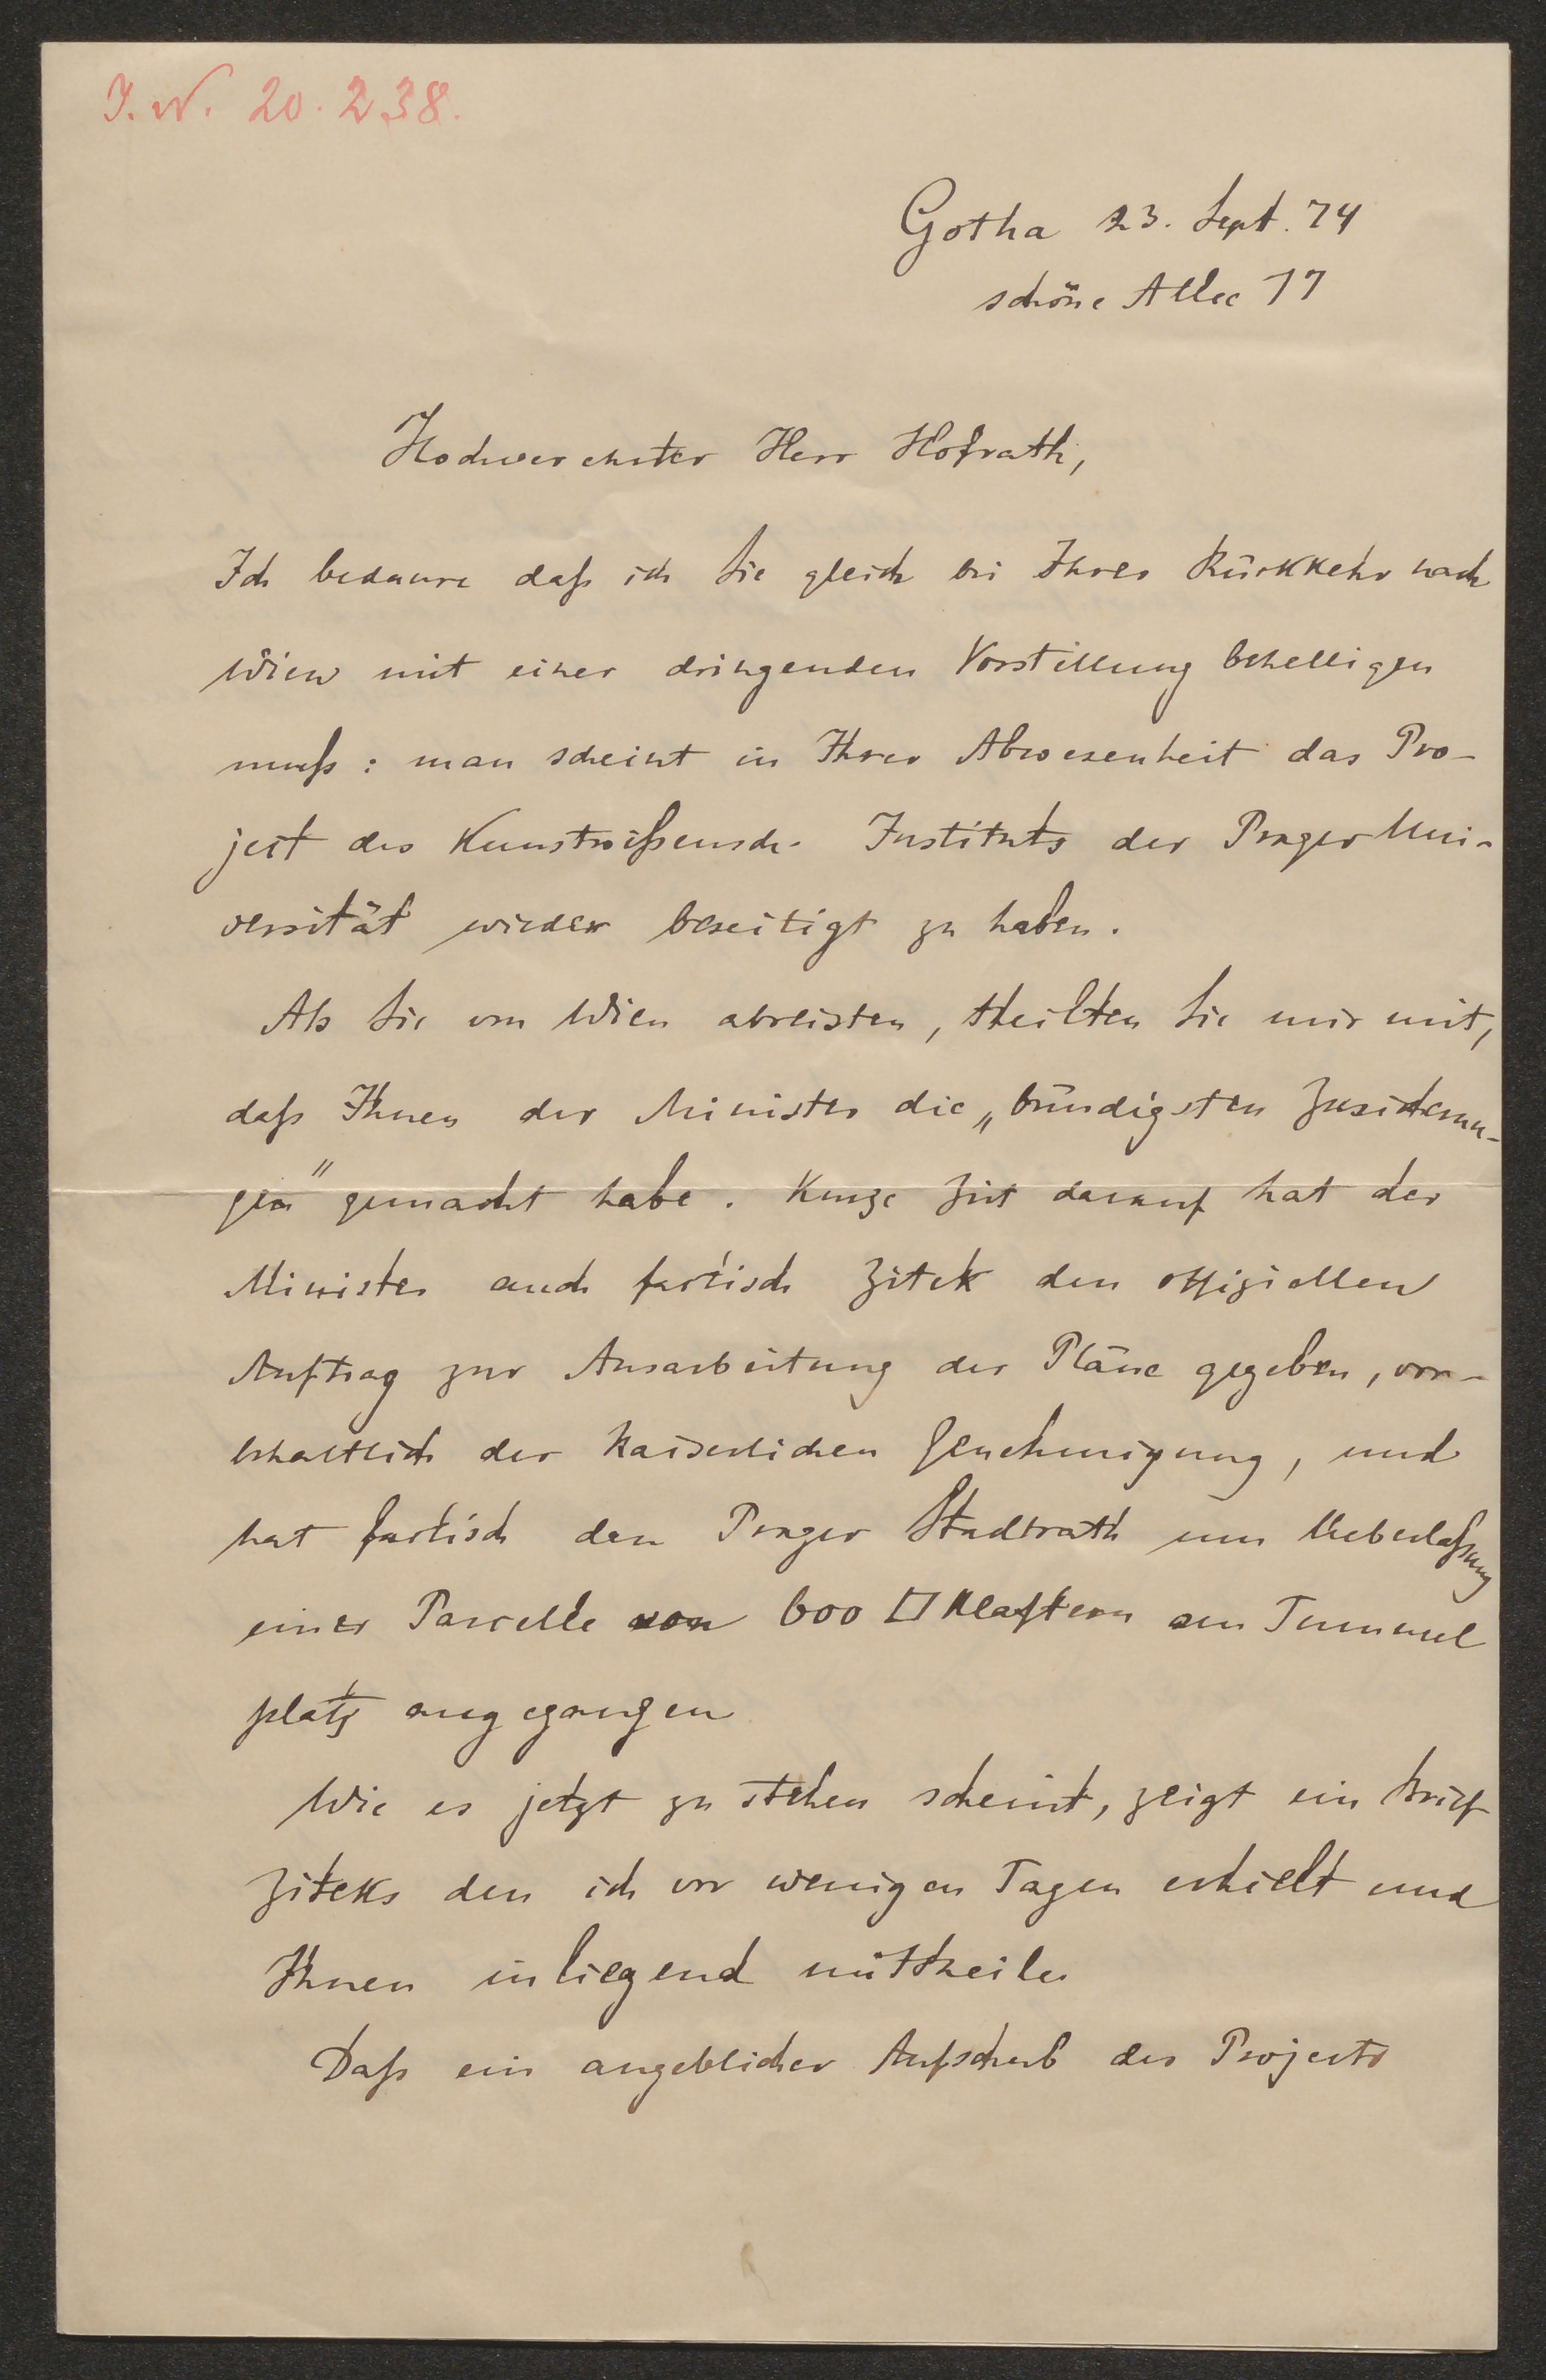 J. N. 20.238.
Gotha 23. Sept. 74
schöne Allee 17
Hochverehrter Herr Hofrath,
Ich bedaure daß ich Sie gleich bei Ihrer Rückkehr nach
Wien mit einer dringenden Vorstellung behelligen
muß: man scheint in Ihrer Abwesenheit das Pro-
ject des Kunstwißensch. Instituts der Prager Uni-
versität wieder beseitigt zu haben.
Als Sie von Wien abreisten, theilten Sie mir mit,
daß Ihnen der Minister die „bündigsten Zusicherun-
gen" gemacht habe. Kurze Zeit darauf hat der
Minister auch factisch Zitek den offiziellen
Auftrag zur Ausarbeitung der Pläne gegeben, vor-
behaltlich der kaiserlichen Genehmigung, und
hat factisch den Prager Stadtrath um Ueberlaßung
einer Parcelle von 600 □ Klaftern am Tummel
platz angegangen
Wie es jetzt zu stehen scheint, zeigt ein Brief
Ziteks den ich vor wenigen Tagen erhielt und
Ihnen inliegend mittheile.
Daß ein angeblicher Aufschub des Projects